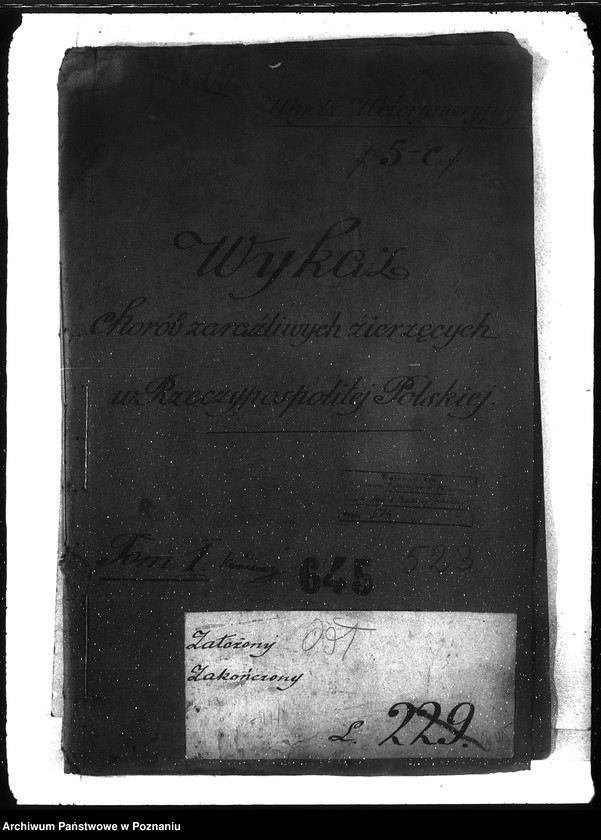 Weterynaryjny
/ 5-c /
Wykaz
chorób zaraźliwych zwierzęcych
w Rzeczypospolitej Polskiej.
Tom 1.
645 523
Założony
Zakończony
L. 229.
Archiwum Państwowe w Poznaniu